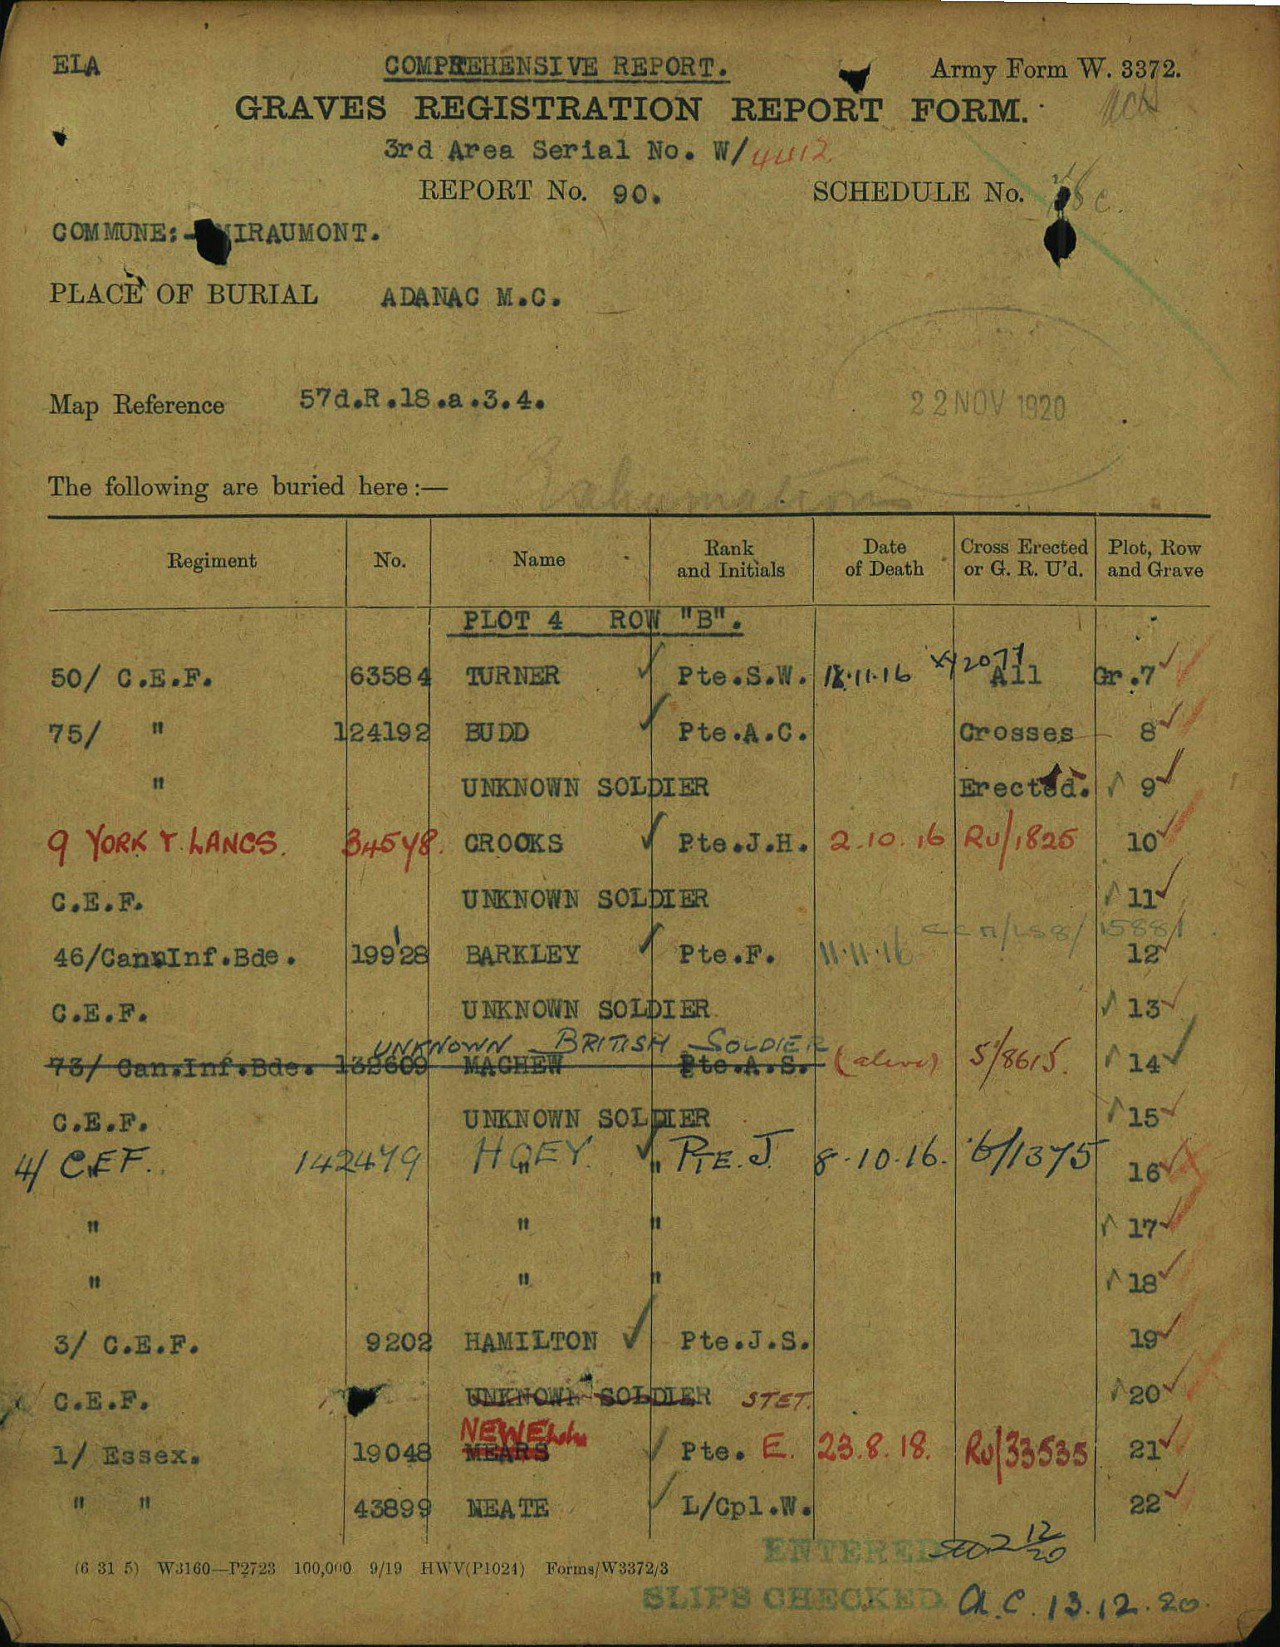 ELA COMPREHENSIVE REPORT. Army Form W. 3372.
GRAVES REGISTRATION REPORT FORM.
3rd Area Serial No. W/4412
REPORT No. 90. SCHEDULE No.
COMMUNE: MIRAUMONT.
PLACE OF BURIAL ADANAC M.C.
Map Reference 57d.R.18.a.3.4.
22 NOV 1920
The following are buried here:— Exhumation
Regiment No. Name Rank and Initials Date of Death Cross Erected or G. R. U'd. Plot, Row and Grave
PLOT 4 ROW "B".
50/ C.E.F. 63584 TURNER Pte.S.W. 18.11.16 All Gr.7
75/ " 124192 BUDD Pte.A.C. Crosses 8
" UNKNOWN SOLDIER Erected. 9
9 YORK & LANCS. 34578. CROOKS Pte.J.H. 2.10.16 RU/1825 10
C.E.F. UNKNOWN SOLDIER 11
46/Can.Inf.Bde. 199128 BARKLEY Pte.F. 11.11.16 12
C.E.F. UNKNOWN SOLDIER 13
UNKNOWN BRITISH SOLDIER
73/ Can.Inf.Bde. 132609 MACHEW Pte.A.S. (alive) S/8615. 14
C.E.F. UNKNOWN SOLDIER 15
4/ C.E.F. 142479 HOEY. " " PTE. J. 8.10.16. 6/1375 16
" " " 17
" " " 18
3/ C.E.F. 9202 HAMILTON Pte.J.S. 19
C.E.F. UNKNOWN SOLDIER STET. 20
1/ Essex. 19048 MEARS Pte. E. 23.8.18. RU/33535 21
" " 43899 NEATE L/Cpl.W. 22
(6 31 5) W3160—P2723 100,000 9/19 HWV(P1024) Forms/W3372/3
ENTERED 12/20
SLIPS CHECKED a.c. 13.12.20.